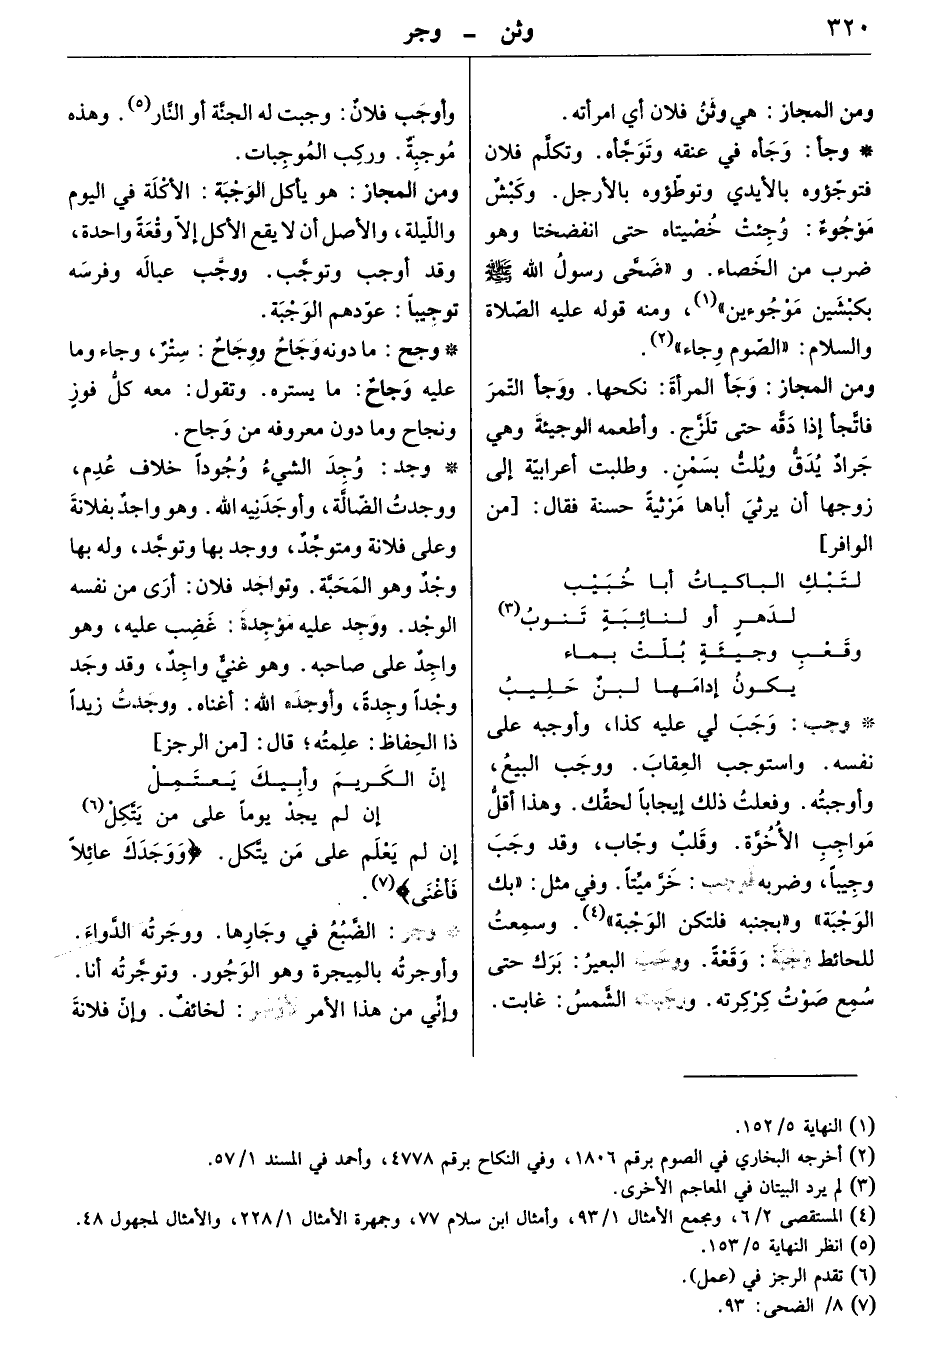 ٣٢٠
وثن - وجر
ومن المجاز: هي وثَنُ فلان أي امرأته.
* وجأ: وَجَأه في عنقه وتَوَجَّأه. وتكلَّم فلان
فتوجّؤوه بالأيدي وتوطّؤوه بالأرجل. وكَبْشٌ
مَوْجُوءٌ: وُجِئتْ خُصْيتاه حتى انفضختا وهو
ضرب من الخَصاء. و «ضَحَّى رسولُ الله ﷺ
بكبْشين مَوْجُوءين»(١)، ومنه قوله عليه الصّلاة
والسلام: «الصّوم وجاء»(٢).
ومن المجاز: وَجَأ المرأةَ: نكحها. ووَجأ التّمرَ
فاتَّجأ إذا دَقَّه حتى تلَزَّج. وأطعمه الوجيئةَ وهي
جَرادٌ يُدَقُّ ويُلتُّ بسَمْنٍ. وطلبت أعرابيّة إلى
زوجها أن يرثيَ أباها مَرْثيةً حسنة فقال: [من
الوافر]
لتَبْكِ الباكياتُ أبا خُبَيْبٍ
لدَهرٍ أو لنائِبَةٍ تَنوبُ(٣)
وقَعْبِ وجيئَةٍ بُلّتْ بماء
يكونُ إدامَها لبنٌ حَليبُ
* وجب: وَجَبَ لي عليه كذا، وأوجبه على
نفسه. واستوجب العِقابَ. ووجَب البيعُ،
وأوجبتُه. وفعلتُ ذلك إيجاباً لحقّك. وهذا أقلُّ
مَواجِبِ الأُخُوَّة. وقَلبٌ وجّاب، وقد وجَبَ
وجيباً، وضربه فوجب: خَرَّ ميِّتاً. وفي مثل: «بك
الوَجْبَة» و«بجنبه فلتكن الوَجْبة»(٤). وسمِعتُ
للحائط وَجْبَةً: وَقَعْةً. ووجَب البعيرُ: بَرَك حتى
سُمِع صَوْتُ كِرْكِرته. ووجَبت الشّمسُ: غابت.
وأوجَب فلانٌ: وجبت له الجنَّة أو النَّار(٥). وهذه
مُوجِبةٌ. وركِب المُوجِبات.
ومن المجاز: هو يأكل الوَجْبَة: الأكْلَة في اليوم
واللّيلة، والأصل أن لا يقع الأكل إلاّ وقْعَةً واحدة،
وقد أوجب وتوجَّب. ووجَّب عيالَه وفرسَه
توجيباً: عوّدهم الوَجْبَة.
* وجح: ما دونه وَجَاحٌ ووِجَاحٌ: سِتْرٌ، وجاء وما
عليه وَجاحٌ: ما يستره. وتقول: معه كلُّ فوزٍ
ونجاح وما دون معروفه من وَجاح.
* وجد: وُجِدَ الشيءُ وُجُوداً خلاف عُدِم،
ووجدتُ الضّالَّة، وأوجَدَنِيه الله. وهو واجدٌ بفلانةَ
وعلى فلانة ومتوجِّدٌ، ووجد بها وتوجَّد، وله بها
وجْدٌ وهو المَحَبَّة. وتواجَد فلان: أرَى من نفسه
الوجْد. ووجَد عليه مَوْجِدةً: غَضِب عليه، وهو
واجِدٌ على صاحبه. وهو غنيٌّ واجِدٌ، وقد وجَد
وجْداً وجِدةً، وأوجدَه الله: أغناه. ووجدتُ زيداً
ذا الحِفاظ: علِمتُه؛ قال: [من الرجز]
إنّ الكَريمَ وأبيكَ يَعتَمِلْ
إن لم يجدْ يوماً على من يَتَّكِلْ(٦)
إن لم يَعْلَم على مَن يتَّكل. ﴿وَوَجَدَكَ عائِلاً
فَأَغْنَى﴾(٧).
* وجر: الضَّبُعُ في وجَارِها. ووجَرتُه الدَّواءَ.
وأوجرتُه بالمِيجرة وهو الوَجُور. وتوجَّرتُه أنا.
وإنِّي من هذا الأمر لأَوْجَر: لخائفٌ. وإنّ فلانةَ
(١) النهاية ١٥٢/٥.
(٢) أخرجه البخاري في الصوم برقم ١٨٠٦، وفي النكاح برقم ٤٧٧٨، وأحمد في المسند ٥٧/١.
(٣) لم يرد البيتان في المعاجم الأخرى.
(٤) المستقصى ٦/٢، ومجمع الأمثال ٩٣/١، وأمثال ابن سلام ٧٧، وجمهرة الأمثال ٢٢٨/١، والأمثال لمجهول ٤٨.
(٥) انظر النهاية ١٥٣/٥.
(٦) تقدم الرجز في (عمل).
(٧) ٨/ الضحى: ٩٣.